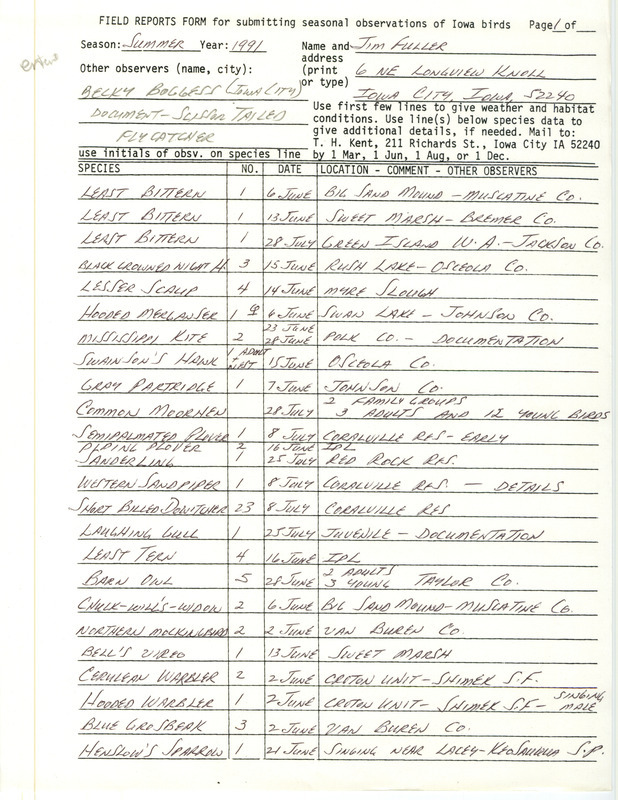 FIELD REPORTS FORM for submitting seasonal observations of Iowa birds Page 1 of
Season: Summer Year: 1991 Name and Jim Fuller
address
(print 6 NE Longview Knoll
or type)
Other observers (name, city): Iowa City, Iowa, 52240
Becky Boggess (Iowa City)
Document - Scissor Tailed
Flycatcher
Use first few lines to give weather and habitat
conditions. Use line(s) below species data to
give additional details, if needed. Mail to:
T. H. Kent, 211 Richards St., Iowa City IA 52240
use initials of obsv. on species line by 1 Mar, 1 Jun, 1 Aug, or 1 Dec.
SPECIES NO. DATE LOCATION - COMMENT - OTHER OBSERVERS
Least Bittern 1 6 June Big Sand Mound - Muscatine Co.
Least Bittern 1 13 June Sweet Marsh - Bremer Co.
Least Bittern 1 28 July Green Island W.A. - Jackson Co.
Black Crowned Night H. 3 15 June Rush Lake - Osceola Co.
Lesser Scaup 4 14 June Myre Slough
Hooded Merganser 1 ♀ 6 June Swan Lake - Johnson Co.
Mississippi Kite 2 23 June 28 June Polk Co. - Documentation
Swainson's Hawk 1 adult + nest 15 June Osceola Co.
Gray Partridge 1 7 June Johnson Co.
Common Moorhen 28 July 2 family groups 3 adults and 12 young birds
Semipalmated Plover 1 8 July Coralville Res - early
Piping Plover 2 16 June IPL
Sanderling 1 25 July Red Rock Res.
Western Sandpiper 1 8 July Coralville Res. - Details
Short Billed Dowitcher 23 8 July Coralville Res
Laughing Gull 1 25 July Juvenile - Documentation
Least Tern 4 16 June IPL
Barn Owl 5 28 June 2 adults 3 young Taylor Co.
Chuck-Will's-Widow 2 6 June Big Sand Mound - Muscatine Co.
Northern Mockingbird 2 2 June Van Buren Co.
Bell's Vireo 1 13 June Sweet Marsh
Cerulean Warbler 2 2 June Croton Unit - Shimek S.F.
Hooded Warbler 1 2 June Croton Unit - Shimek S.F. - singing male
Blue Grosbeak 3 2 June Van Buren Co.
Henslow's Sparrow 1 21 June Singing near Lacey-Keosauqua S.P.